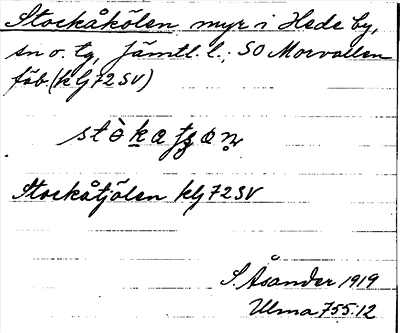 Stockåkölen myr i Hede by,
sn o. tg, Jämtl. l.; SO Morvallen
fäb. (klj 72 SV)
Stockåtjölen klj 72 SV
S. Åsander 1919
Ulma 755:12